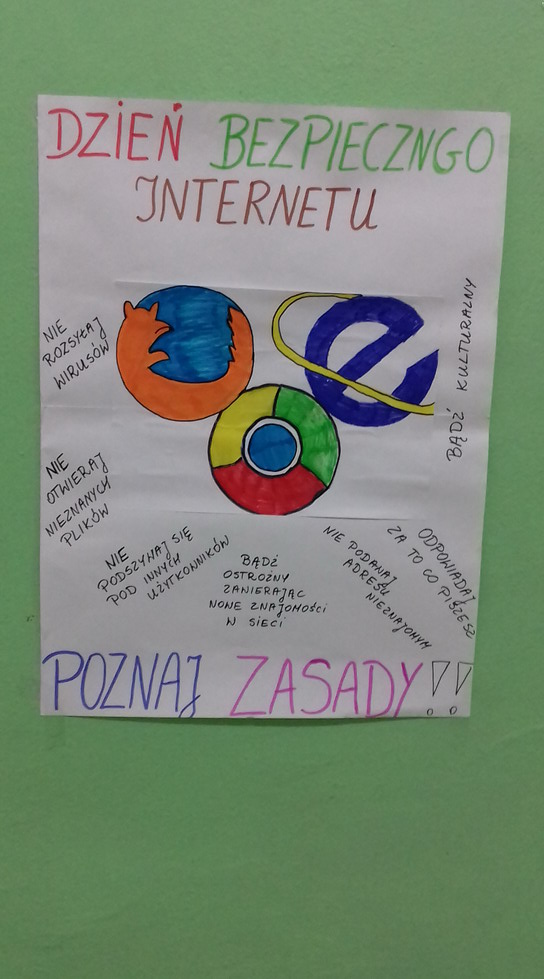 DZIEŃ BEZPIECZNGO
INTERNETU
NIE
ROZSYŁAJ
WIRUSÓW
BĄDŹ KULTURALNY
NIE
OTWIERAJ
NIEZNANYCH
PLIKÓW
NIE
PODSZYWAJ SIĘ
POD INNYCH
UŻYTKOWNIKÓW
BĄDŹ
OSTROŻNY
ZAWIERAJĄC
NOWE ZNAJOMOŚCI
W SIECI
NIE PODAWAJ
ADRESU
NIEZNAJOMYM
ODPOWIADAJ
ZA TO CO PISZESZ
POZNAJ ZASADY!!